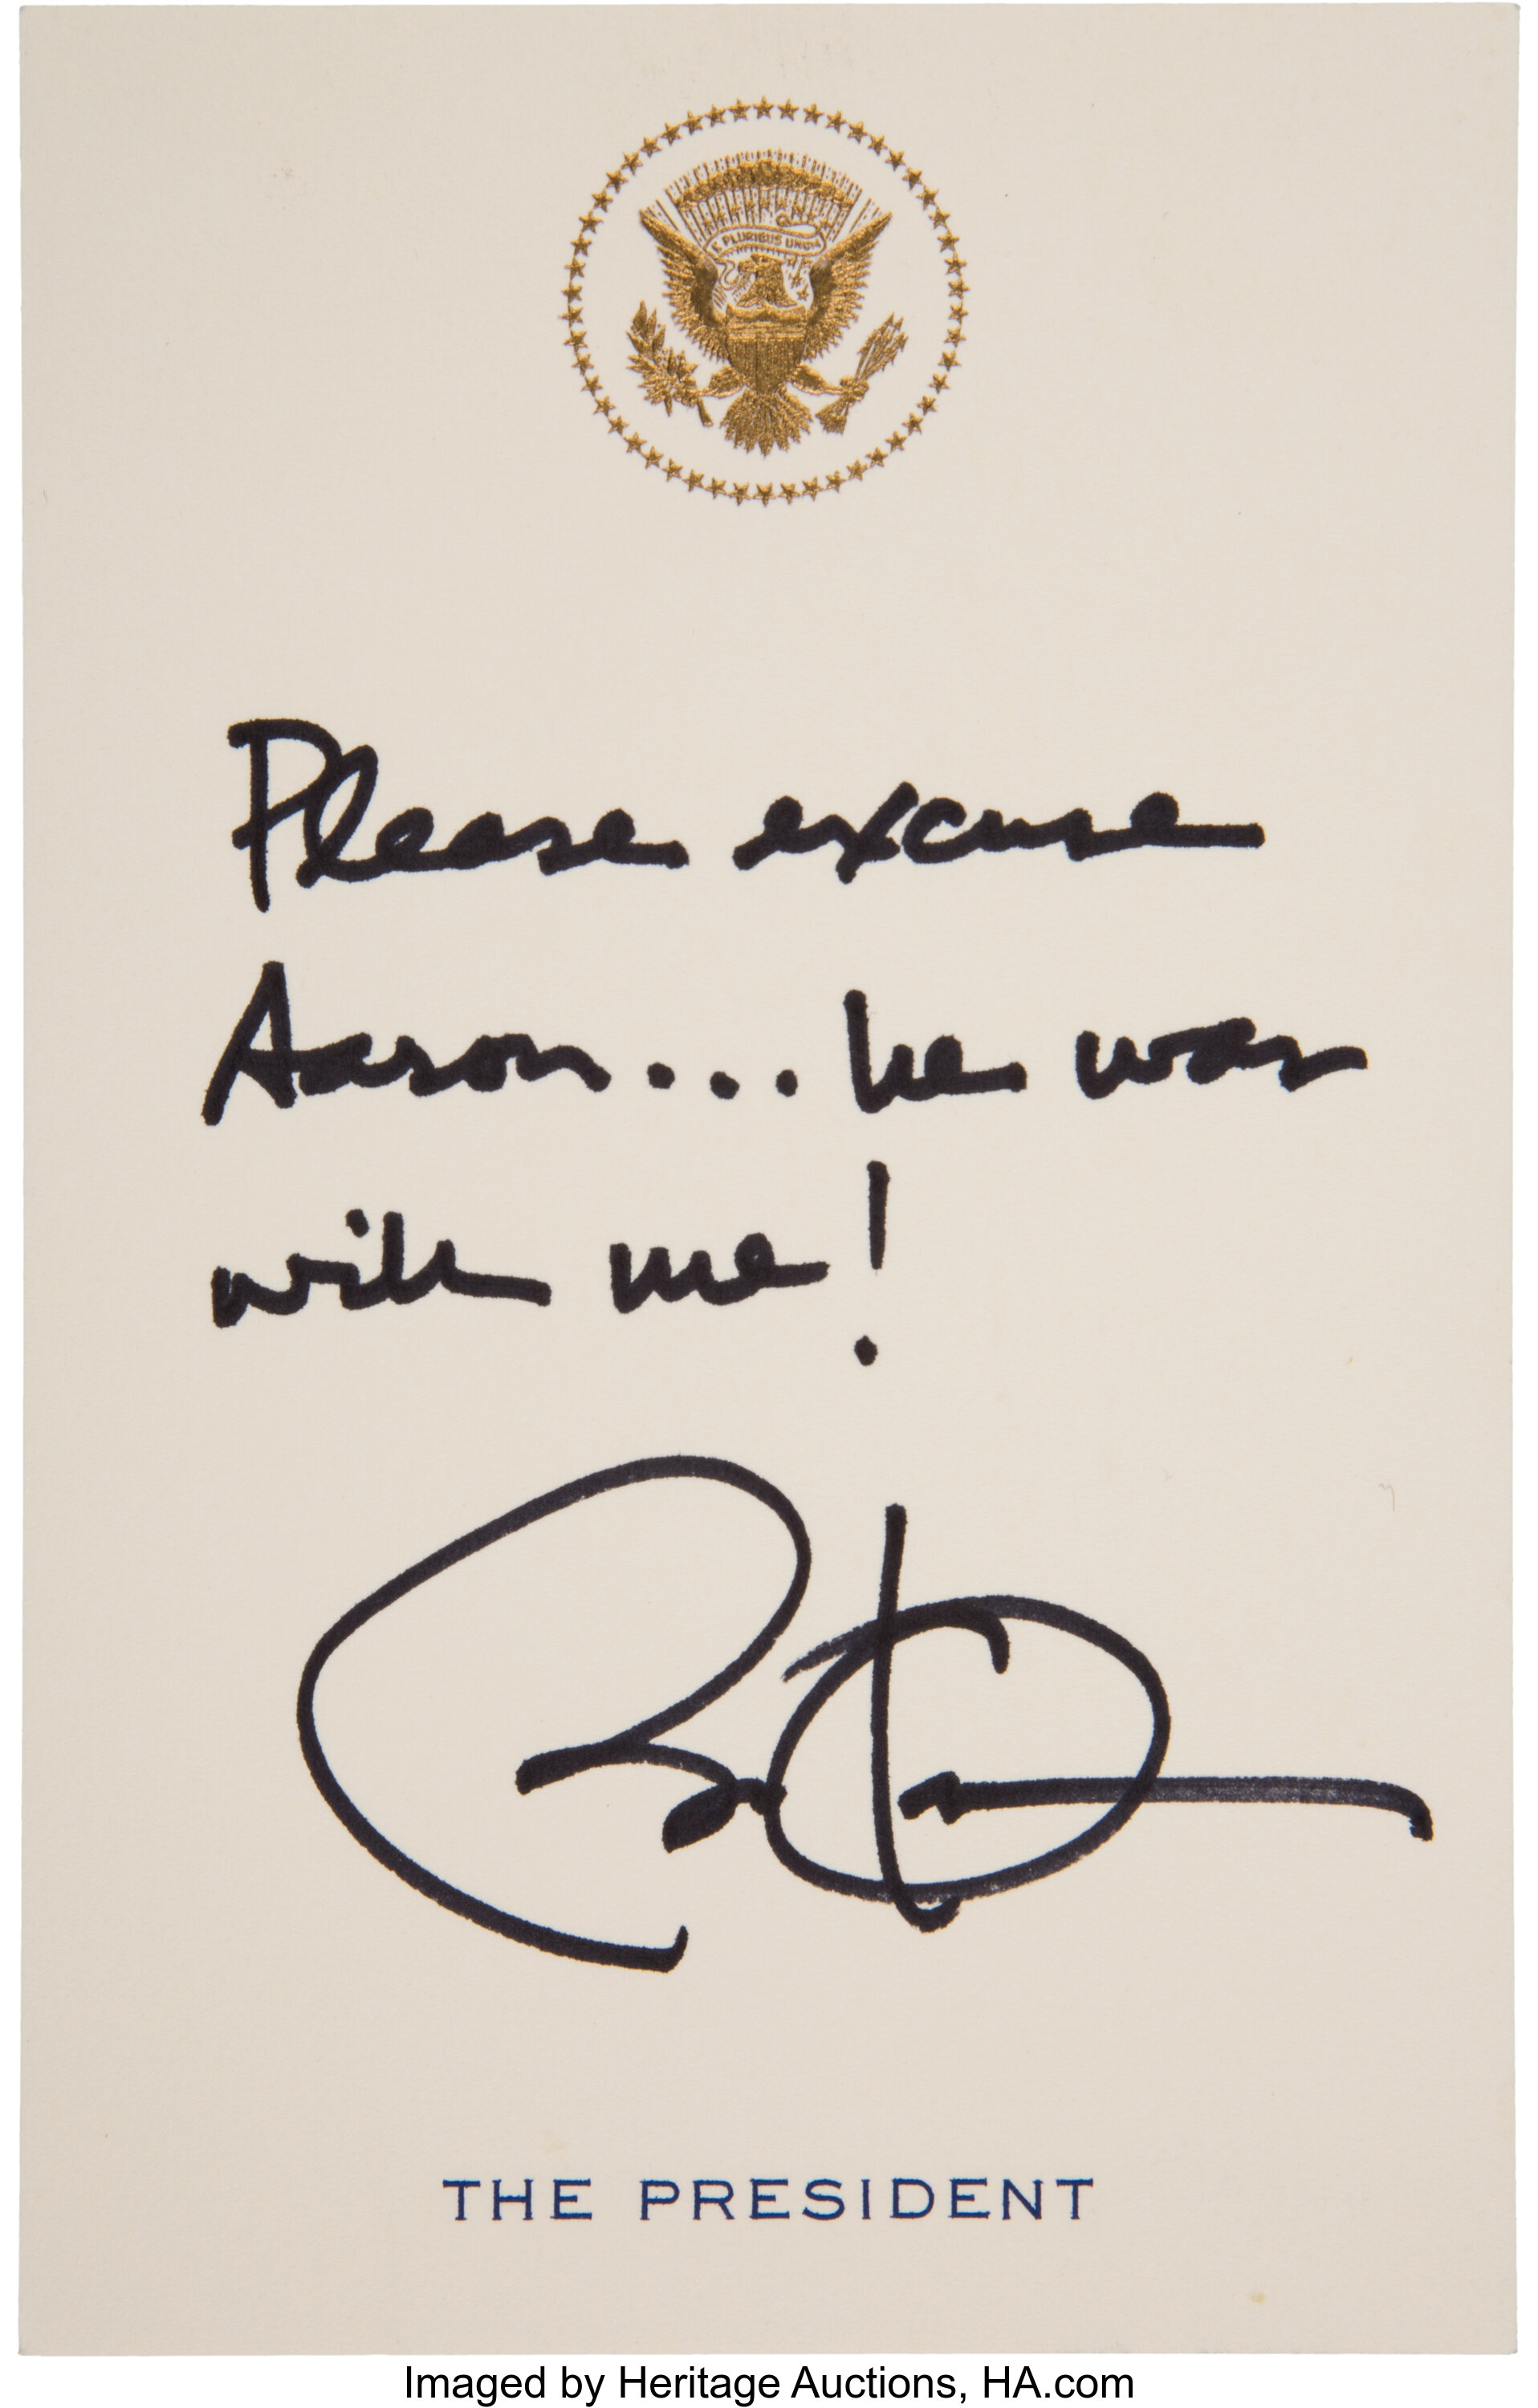 E PLURIBUS UNUM
Please excuse
Aaron... he was
with me!
THE PRESIDENT
Imaged by Heritage Auctions, HA.com